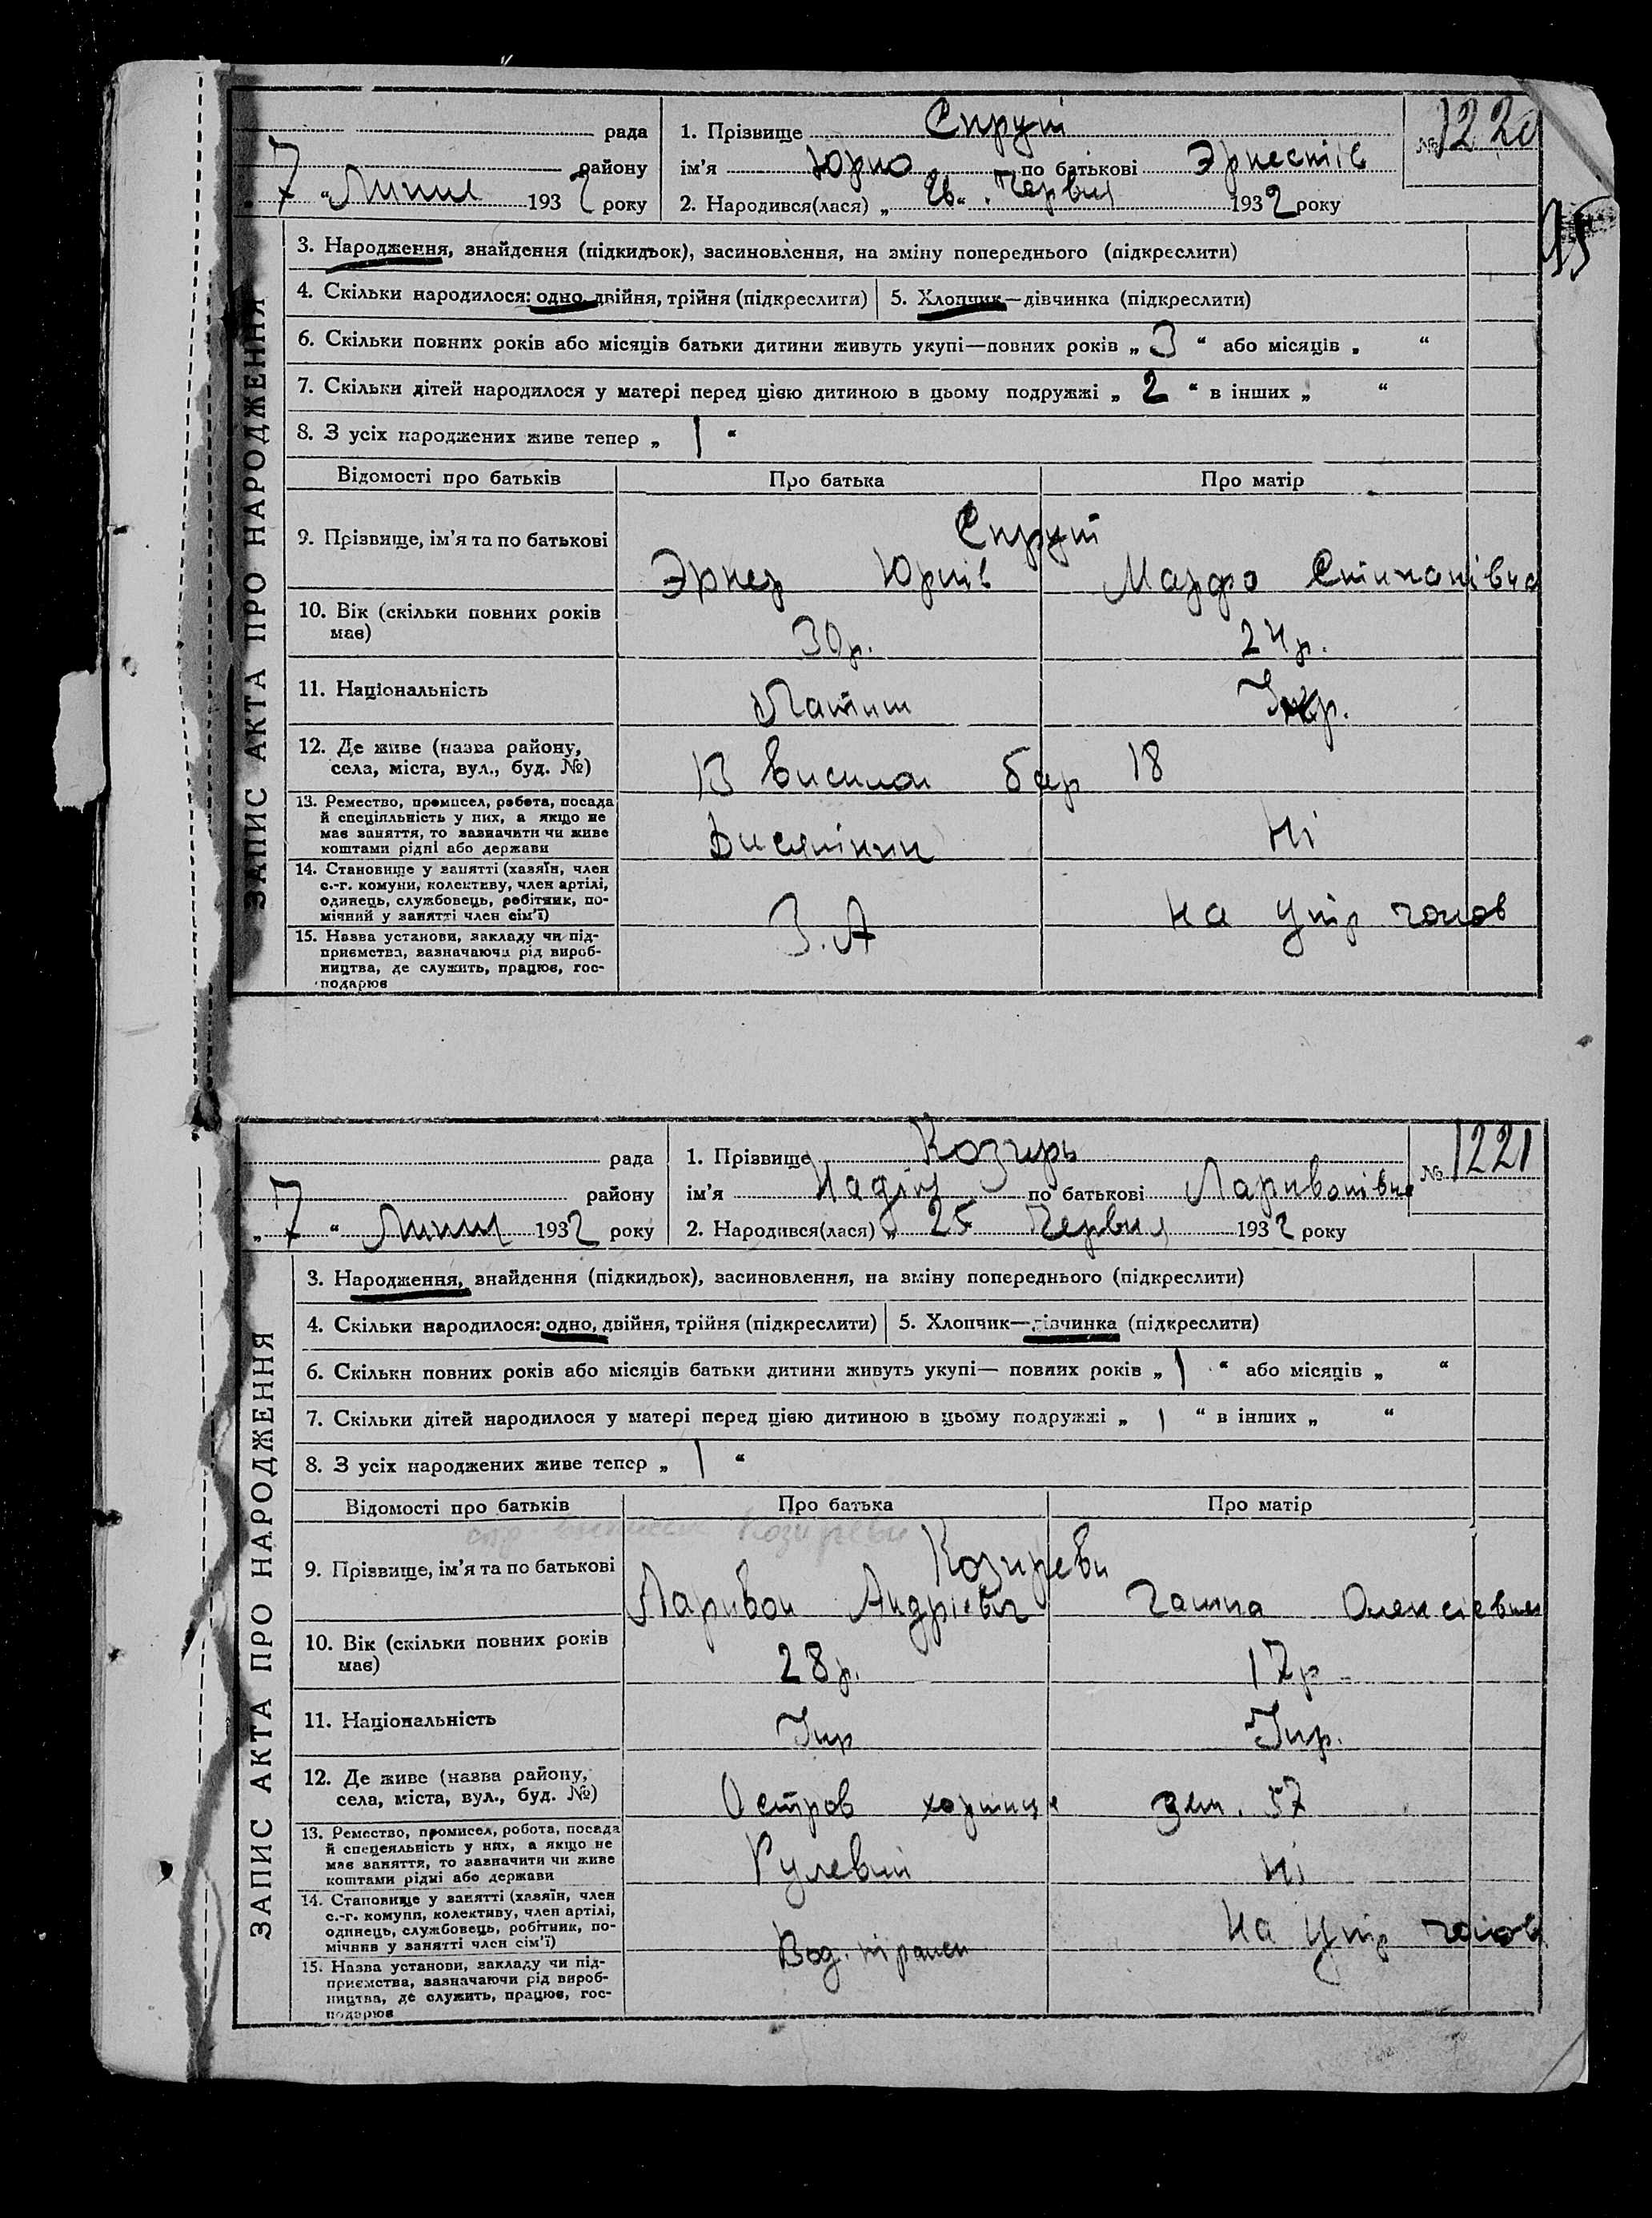 рада
району
7 " Липня 1932 року
1. Прізвище Спрут
ім'я Юрко по батькові Эрнестів
2. Народився(лася) „ 26 “ Червня 1932 року
№ 1220
95
ЗАПИС АКТА ПРО НАРОДЖЕННЯ
3. Народження, знайдення (підкидьок), засиновлення, на зміну попереднього (підкреслити)
4. Скільки народилося: одно, двійня, трійня (підкреслити) 5. Хлопчик—дівчинка (підкреслити)
6. Скільки повних років або місяців батьки дитини живуть укупі—повних років „ 3 “ або місяців „ “
7. Скільки дітей народилося у матері перед цією дитиною в цьому подружжі „ 2 “ в інших „ “
8. З усіх народжених живе тепер „ 1 “
Відомості про батьків Про батька Про матір
Спрут
9. Прізвище, ім'я та по батькові
Эрнез Юрків Марфа Стипанівна
10. Вік (скільки повних років
має)
30р. 24р.
11. Національність
Латиш Укр.
12. Де живе (назва району,
села, міста, вул., буд. №)
бар 18
13. Ремество, промисел, робота, посада
й спеціяльність у них, а якщо не
має заняття, то зазначити чи живе
коштами рідні або держави
Ні
14. Становище у занятті (хазяїн, член
с.-г. комуни, колективу, член артілі,
одинець, службовець, робітник, по-
мічний у занятті член сім'ї)
на утр чолов
15. Назва установи, закладу чи під-
приємства, вазначаючи рід вироб-
ництва, де служить, працює, гос-
подарює
З. А
рада
району
„ 7 “ Липня 1932 року
1. Прізвище Козирь
ім'я Надія по батькові Ларивонівна
2. Народився(лася) „ 25 Червня 1932 року
№ 1221
ЗАПИС АКТА ПРО НАРОДЖЕННЯ
3. Народження, знайдення (підкидьок), засиновлення, на зміну попереднього (підкреслити)
4. Скільки народилося: одно, двійня, трійня (підкреслити) 5. Хлопчик—дівчинка (підкреслити)
6. Скільки повних років або місяців батьки дитини живуть укупі— повних років „ 1 “ або місяців „ “
7. Скільки дітей народилося у матері перед цією дитиною в цьому подружжі „ 1 “ в інших „ “
8. З усіх народжених живе тепер „ 1 “
Відомості про батьків Про батька Про матір
Козиреви
Козиреви
9. Прізвище, ім'я та по батькові
Ларивон Андрієвич Ганна Олексієвна
10. Вік (скільки повних років
має)
28р. 17р
11. Національність
Укр Укр.
12. Де живе (назва району,
села, міста, вул., буд. №)
Остров хортиця зем. 57
13. Ремество, промисел, робота, посада
й спецеяльність у них, а якщо не
має заняття, то вазначити чи живе
коштами рідні або держави
Рулевий Ні
14. Становище у занятті (хазяїн, член
с.-г. комуни, колективу, член артілі,
одинець, службовець, робітник, по-
мічнив у занятті член сім'ї)
на утр чолов
15. Назва установи, закладу чи під-
приємства, зазначаючи рід вироб-
ництва, де служить, працює, гос-
подарює
Вод. трансп